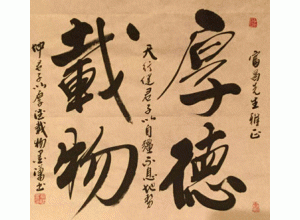 先生雅正
厚德
天行健君子以自彊不息地勢
載物
坤君子以厚德載物